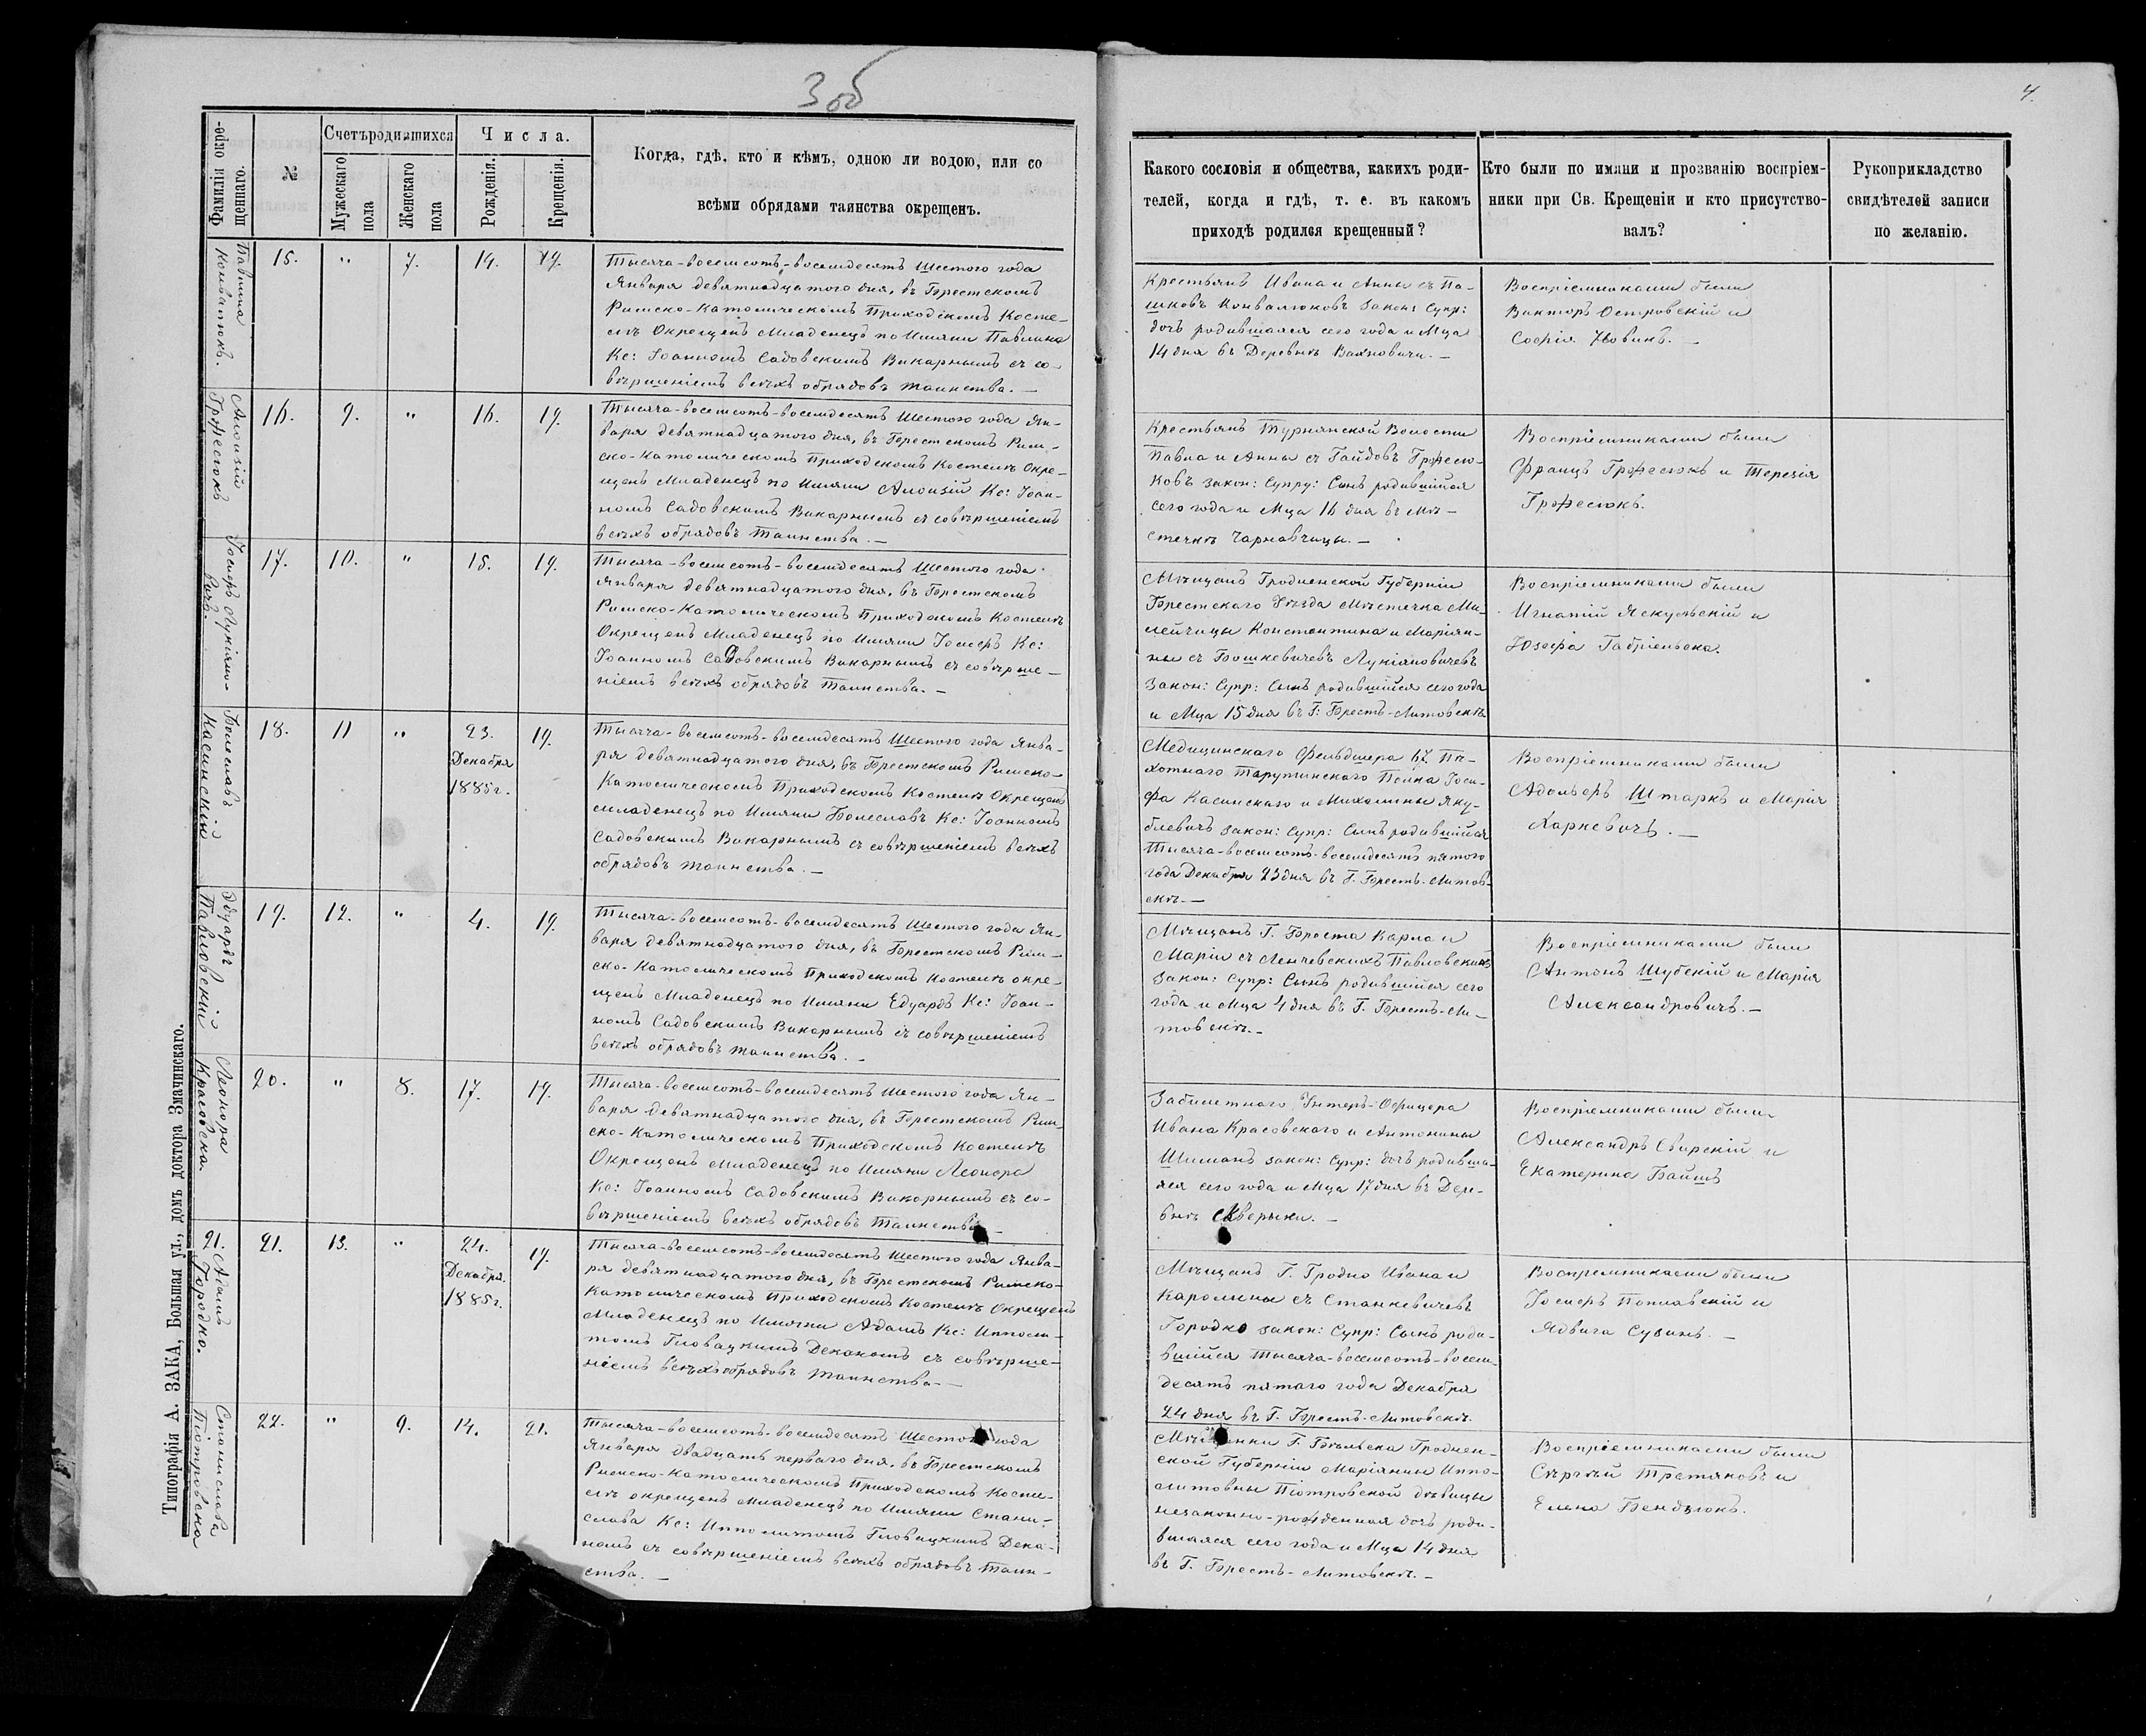 3 об
4.
Фамилія крещеннаго.
№
Счетъ родившихся
Мужескаго пола
Женскаго пола
Числа.
Рожденія.
Крещенія.
Когда, гдѣ, кто и кѣмъ, одною ли водою, или со
всѣми обрядами таинства окрещенъ.
Какого сословія и общества, какихъ роди-
телей, когда и гдѣ, т. е. въ какомъ
приходѣ родился крещенный?
Кто были по имяни и прозванію воспріем-
ники при Св. Крещеніи и кто присутство-
валъ?
Рукоприкладство
свидѣтелей записи
по желанію.
Павлина
Конвалюкъ.
15. " 7. 14. 19.
Тысяча-восемсотъ-восемдесятъ Шестого года
Января девятнадцатого дня, въ Брестскомъ
Римско-Католическомъ Приходскомъ Косте-
лѣ Окрещенъ Младенецъ по Имяни Павлина
Кс: Іоанномъ Садовскимъ Викарнымъ съ со-
вѣршеніемъ всѣхъ обрядовъ таинства. —
Крестьянъ Ивана и Анны съ Па-
шковъ Конвалюковъ Закон: Супр:
дочь родившаяся сего года и Мца
14 дня въ Деревнѣ Вахновичи. —
Воспріемниками были
Викторъ Островскій и
Софія Новикъ. —
Алоизій
16. 9. " 16. 19.
Тысяча-восемсотъ-восемдесятъ Шестого года Ян-
варя девятнадцатого дня, въ Брестскомъ Рим-
ско-Католическомъ Приходскомъ Костелѣ Окре-
щенъ Младенецъ по Имяни Алоизій Кс: Іоан-
номъ Садовскимъ Викарнымъ съ совѣршеніемъ
всѣхъ обрядовъ Таинства. —
Крестьянъ Турнянской Волости
Павла и Анны съ Гайдовъ
закон: Супру: Сынъ родившійся
сего года и Мца 16 дня въ Мѣ-
стечкѣ Чарнавчицы. —
Воспріемниками были
Францъ и Терезія
Іосифъ Лукіяно-
вичъ.
17. 10. " 15. 19.
Тысяча-восемсотъ-восемдесятъ Шестого года
Января девятнадцатого дня, въ Брестскомъ
Римско-Католическомъ Приходскомъ Костелѣ
Окрещенъ Младенецъ по Имяни Іосифъ Кс:
Іоанномъ Садовскимъ Викарнымъ съ совѣрше-
ніемъ всѣхъ обрядовъ Таинства. —
Мѣщанъ Гродненской Губерніи
Брестскаго Уѣзда Мѣстечка Ми-
лейчицы Константина и Маріян-
ны съ Бошкевичевъ Лукіяновичевъ
Закон: Супр: Сынъ родившійся сего года
и Мца 15 дня въ Г: Брестъ-Литовскѣ
Воспріемниками были
Игнатій Яскульскій и
Юзефа Габріельска.
Болеславъ
Касинскій
18. 11 " 23. 19.
Декабря
1885 г.
Тысяча-восемсотъ-восемдесятъ Шестого года Янва-
ря девятнадцатого дня, въ Брестскомъ Римско-
Католическомъ Приходскомъ Костелѣ Окрещенъ
младенецъ по Имяни Болеславъ Кс: Іоанномъ
Садовскимъ Викарнымъ съ совѣршеніемъ всѣхъ
обрядовъ таинства. —
Медицинскаго Фельдшера 67 Пѣ-
хотнаго Тарутинскаго Полка Іоси-
фа Касинскаго и Михалины Яку-
блевичъ закон: Супр: Сынъ родившійся
Тысяча-восемсотъ-восемдесятъ пятого
года Декабря 23 дня въ Г. Брестъ-Литов-
скѣ. —
Воспріемниками были
Адольфъ Штаркъ и Марія
Харкевичъ. —
Эдуардъ
Павловскій
19. 12. " 4. 19.
Тысяча-восемсотъ-восемдесятъ Шестого года Ян-
варя девятнадцатого дня, въ Брестскомъ Рим-
ско-Католическомъ Приходскомъ Костелѣ окре-
щенъ Младенецъ по Имяни Едуардъ Кс: Іоан-
номъ Садовскимъ Викарнымъ съ совѣршеніемъ
всѣхъ обрядовъ таинства. —
Мѣщанъ Г. Бреста Карла и
Маріи съ Ленчевскихъ Павловскихъ
Закон: Супр: Сынъ родившійся сего
года и Мца 4 дня въ Г. Брестъ-Ли-
товскѣ. —
Воспріемниками были
Антонъ Шубскій и Марія
Александровичъ. —
Леонора
Красовска.
20. " 8. 17. 19.
Тысяча-восемсотъ-восемдесятъ Шестого года Ян-
варя девятнадцатого дня, въ Брестскомъ Рим-
ско-Католическомъ Приходскомъ Костелѣ
Окрещенъ Младенецъ по Имяни Леонора
Кс: Іоанномъ Садовскимъ Викарнымъ съ со-
вѣршеніемъ всѣхъ обрядовъ Таинства —
Забилетнаго Унтеръ-Офицера
Ивана Красовскаго и Антонины
Шиманъ закон: Супр: дочь родивша-
яся сего года и Мца 17 дня въ Дере-
внѣ Скверыки. —
Воспріемниками были
Александръ Свирскій и
Екатерина Байшъ
21. Адамъ
Городко.
21. 13. " 24. 19.
Декабря.
1885 г.
Тысяча-восемсотъ-восемдесятъ Шестого года Янва-
ря девятнадцатого дня, въ Брестскомъ Римско-
Католическомъ Приходскомъ Костелѣ Окрещенъ
Младенецъ по Имяни Адамъ Кс: Ипполи-
томъ Гловацкимъ Деканомъ съ совѣрше-
ніемъ всѣхъ обрядовъ таинства —
Мѣщанъ Г. Гродно Ивана и
Каролины съ Станкевичевъ
Городко закон: Супр: Сынъ роди-
вшійся тысяча-восемсотъ-восем-
десятъ пятаго года Декабря
24 дня въ Г. Брестъ-Литовскѣ.
Воспріемниками были
Іосифъ Поплавскій и
Ядвига Сузинъ. —
Станислава
Піотровска
22. " 9. 14. 21.
Тысяча-восемсотъ-восемдесятъ Шестого года
Января двадцать перваго дня, въ Брестскомъ
Римско-Католическомъ Приходскомъ Косте-
лѣ окрещенъ Младенецъ по Имяни Стани-
слава Кс: Ипполитомъ Гловацкимъ Дека-
номъ съ совѣршеніемъ всѣхъ обрядовъ Таин-
ства. —
Мѣщанки Г. Бѣльска Гроднен-
ской Губерніи Маріянны Иппо-
литовны Піотровской дѣвицы
незаконно-рожденная дочь роди-
вшаяся сего года и Мца 14 дня
въ Г. Брестъ-Литовскѣ. —
Воспріемниками были
Сѣргѣй Третяковъ и
Елена Бендзюкъ.
Типографія А. ЗАКА, Большая ул., домъ доктора Значинскаго.